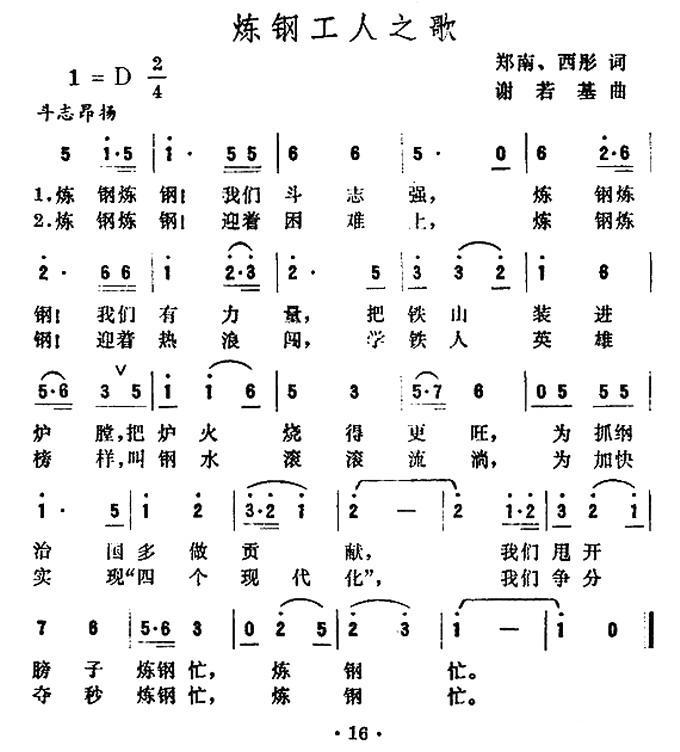 炼钢工人之歌
1 = D 2/4
郑南、西彤 词
谢若基 曲
斗志昂扬
5 1·5 | 1· 5 5 | 6 6 | 5· 0 | 6 2·6 |
1.炼 钢炼 钢! 我们 斗 志 强, 炼 钢炼
2.炼 钢炼 钢! 迎着 困 难 上, 炼 钢炼
2· 6 6 | 1 2·3 | 2· 5 | 3 3 2 | 1 6 |
钢! 我们 有 力 量, 把 铁 山 装 进
钢! 迎着 热 浪 闯, 学 铁 人 英 雄
5·6 3 5 | 1 1 6 | 5 3 | 5·7 6 | 0 5 5 5 |
炉 膛,把 炉 火 烧 得 更 旺, 为 抓纲
榜 样,叫 钢 水 滚 滚 流 淌, 为 加快
1· 5 | 1 2 | 3·2 1 | 2 — | 2 1·2 | 3 2 1 |
治 国 多 做 贡 献, 我们 甩 开
实 现“四 个 现 代 化”, 我们 争 分
7 6 | 5·6 3 | 0 2 5 | 2 3 | 1 — | 1 0 ‖
膀 子 炼钢 忙, 炼 钢 忙。
夺 秒 炼钢 忙, 炼 钢 忙。
· 16 ·